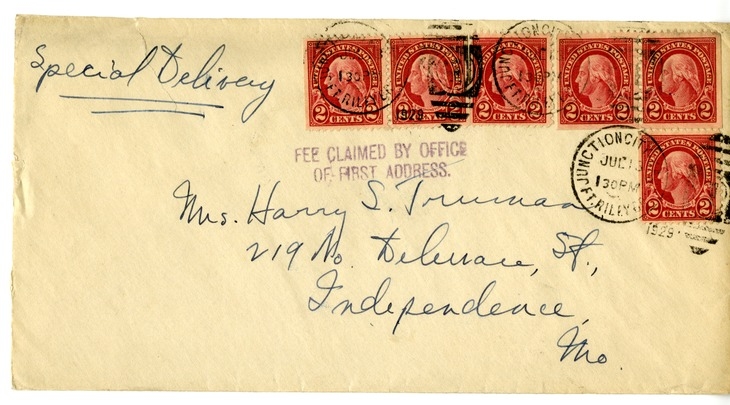 Special Delivery
UNITED STATES POSTAGE
2 CENTS 2
UNITED STATES POSTAGE
2 CENTS 2
UNITED STATES POSTAGE
2 CENTS 2
UNITED STATES POSTAGE
2 CENTS 2
UNITED STATES POSTAGE
2 CENTS 2
JUNCTION CITY
130PM
FT. RILEY
1929
FEE CLAIMED BY OFFICE
OF FIRST ADDRESS.
UNITED STATES POSTAGE
2 CENTS 2
JUNCTION CITY
JUL 13
130PM
FT. RILEY
1929
Mrs. Harry S. Truman
219 No. Delaware, St.,
Independence,
Mo.